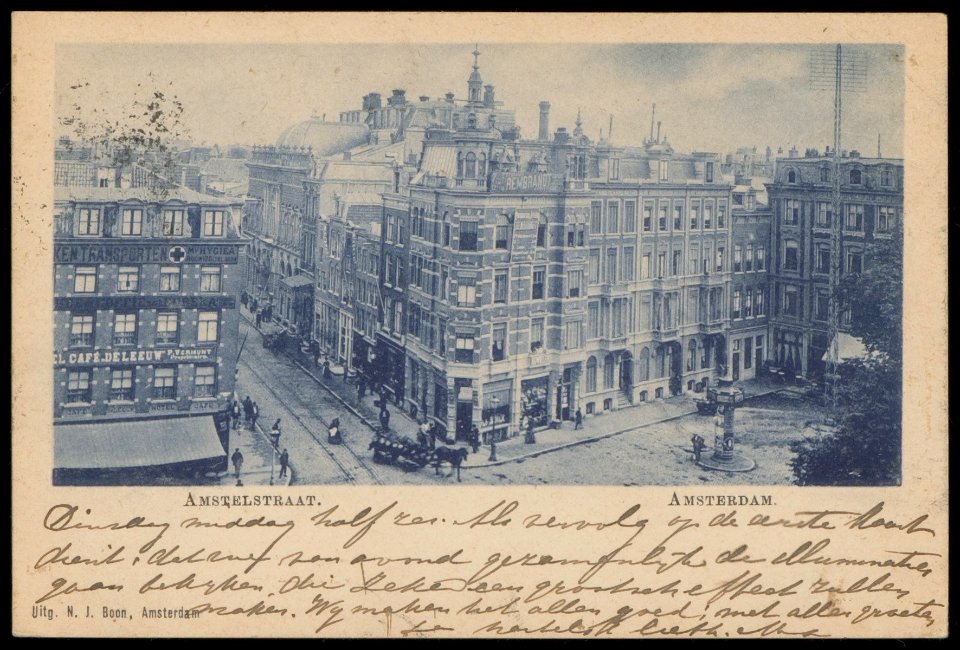 REMBRANDT
KEN TRANSPORTEN
HYGIEA
L CAFÉ.DE LEEUW P. VERMUNT
Proprietaire.
CAFÉ HOTEL CAFÉ
AMSTELSTRAAT. AMSTERDAM.
Dinsdag middag half zes. Als vervolg op de eerste kaart
dient: dat wij van avond gezamenlijk de illuminaties
gaan bekijken, die zeker een grootsch effect zullen
maken. Wij maken het allen goed; met allen groeten
liefh.
Uitg. N. J. Boon, Amsterdam